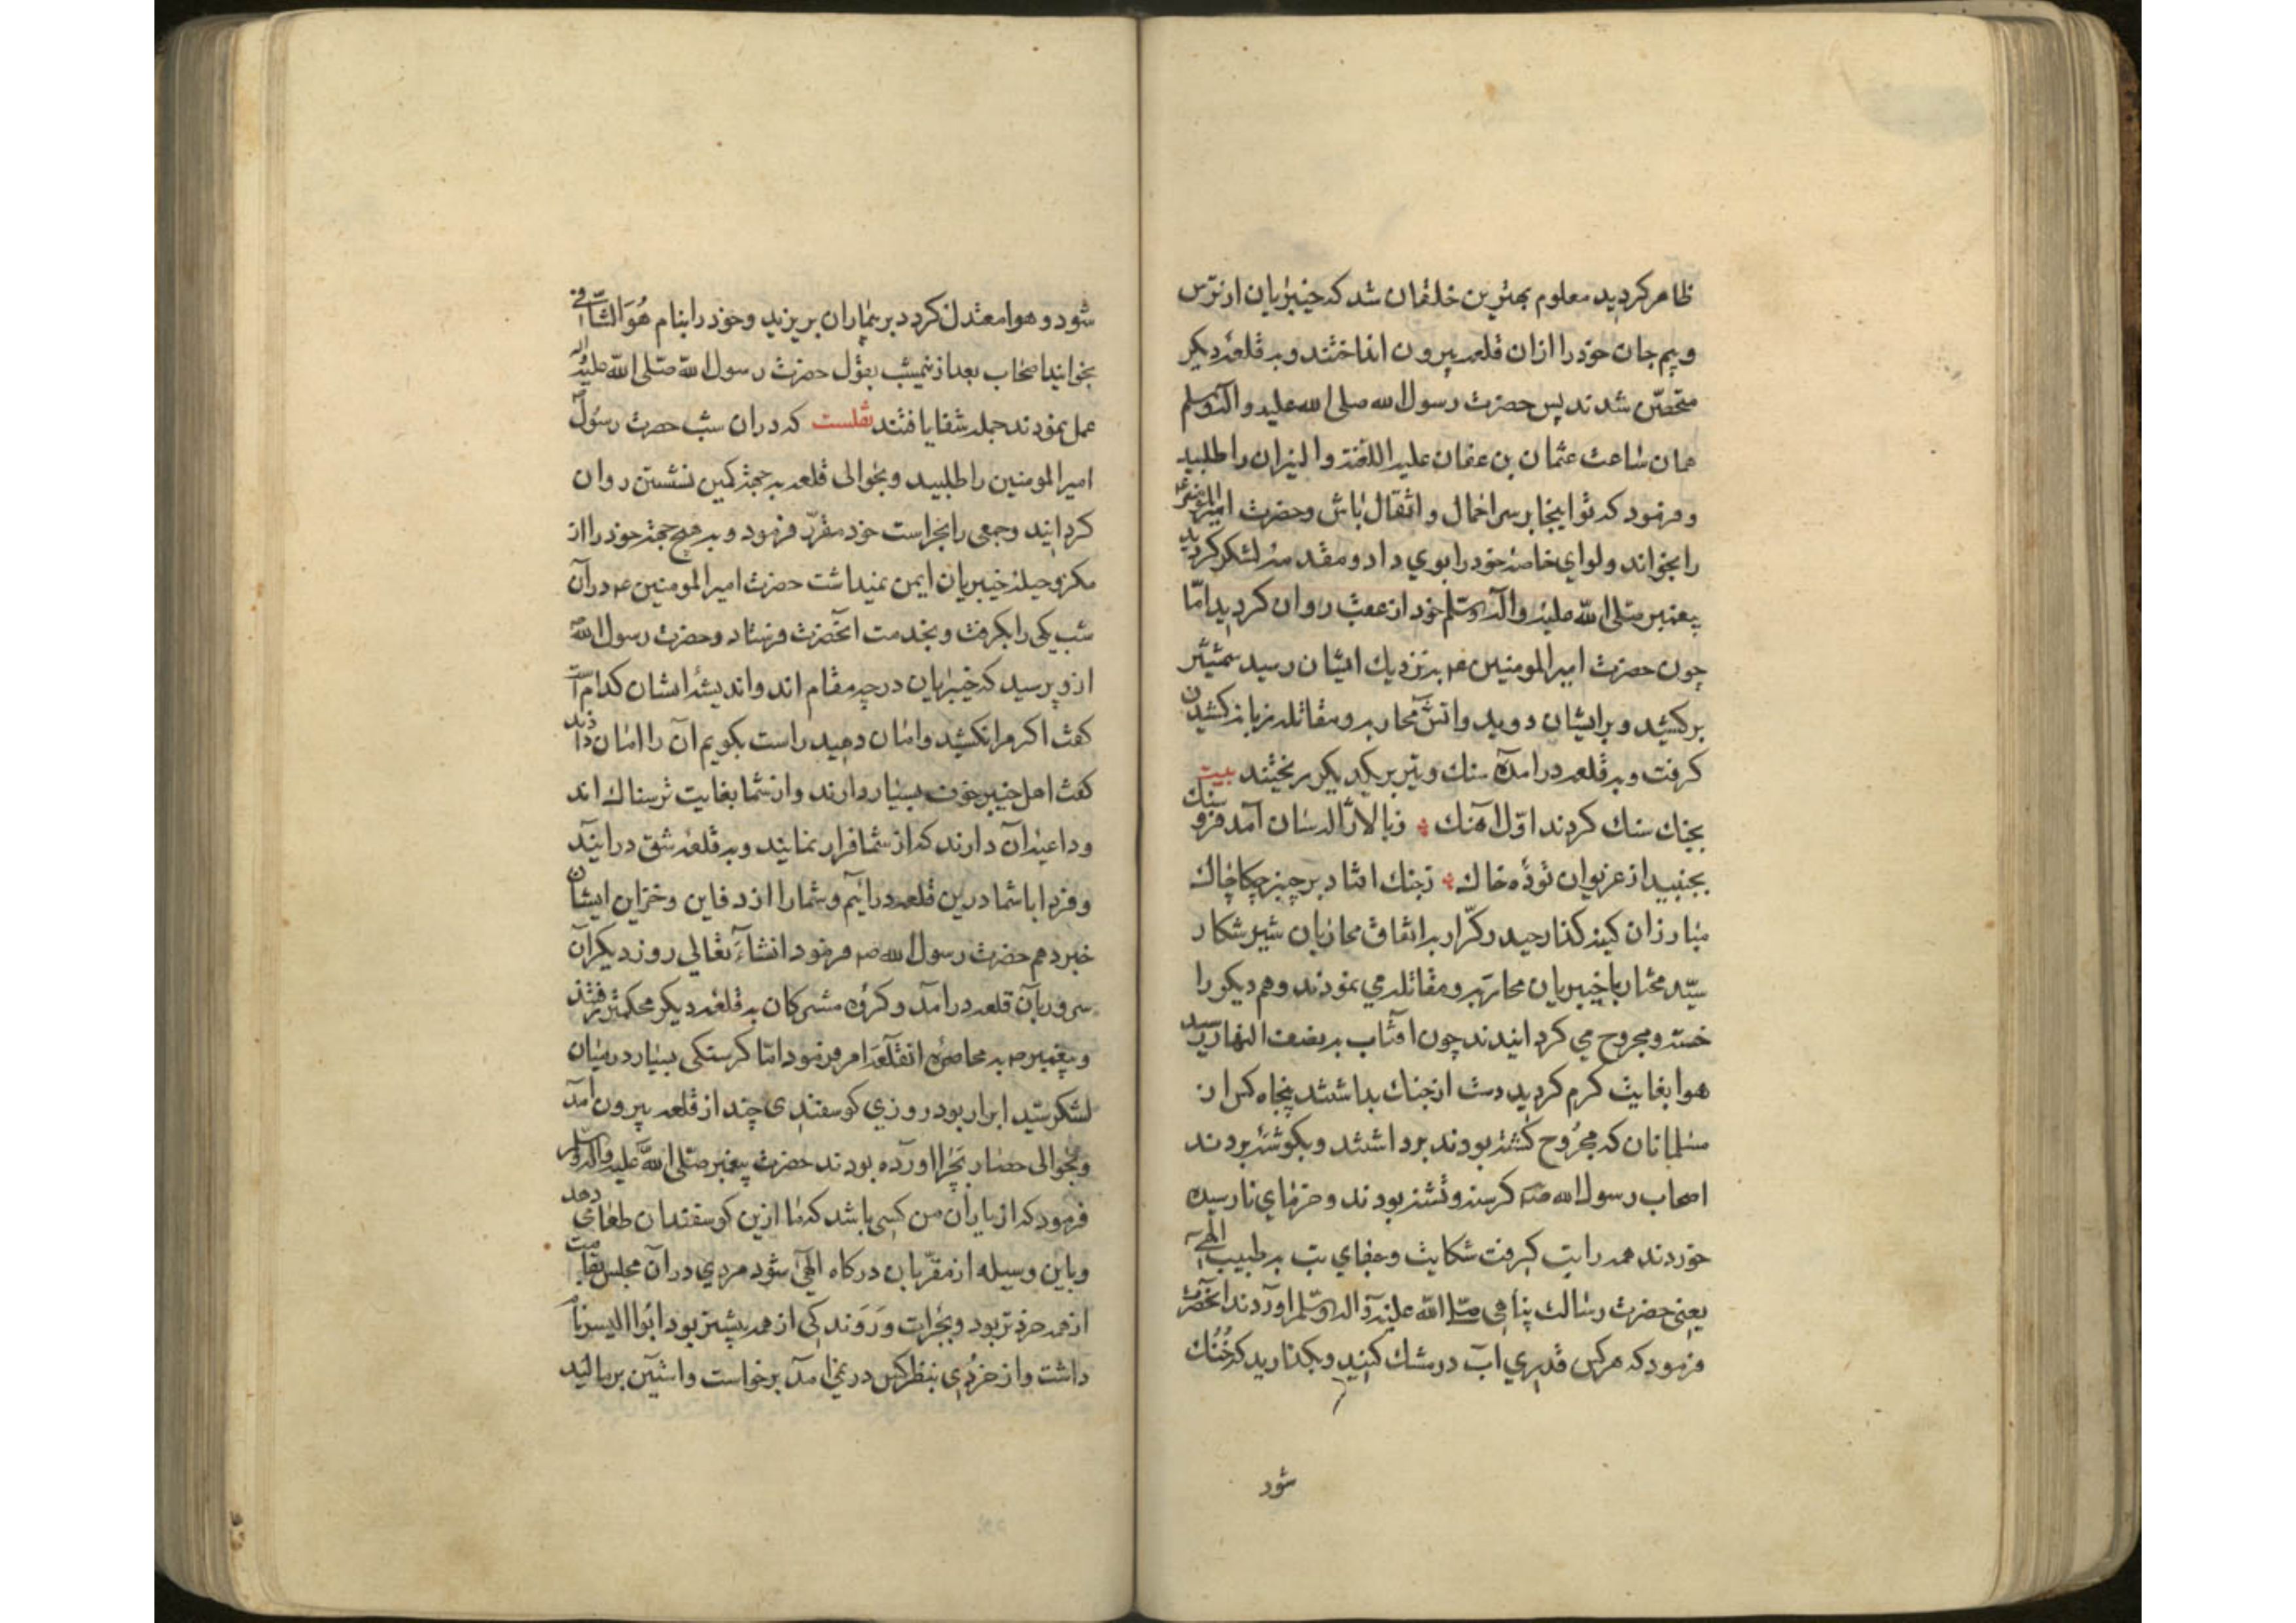 ظاهر کردید معلوم بهترین خلقان شد که خیبریان از ترس
و بیم جان خود را ازان قلعه بیرون انداختند و به قلعهٔ دیکر
متحصّن شدند پس حضرت رسول الله صلی الله علیه و آله وسلم
همان ساعت عثمان بن عفان علیه اللعنة و النیران را طلبید
و فرمود که تو اینجا بر سر احمال و اثقال باش و حضرت
را بخواند و لوای خاصهٔ خود را بوی داد و مقدمهٔ لشکر کردید
پیغمبر صلی الله علیه و آله وسلم خود از عقب روان کردید امّا
چون حضرت امیر المومنین ۴ به نزدیک ایشان رسید شمشیر
برکشید و بر ایشان دوید و اتش محاربه و مقاتله زبانه کشیدن
کرفت و به قلعه درآمده سنک و تیر بر یکدیکر ریختند بیت
بجنک سنک کردند اوّل آهنک ز بالا ژاله سان آمد فرو سنک
بجنبید از غریوان تودهٔ خاک ز جنک افتاد بر چیز چکاچاک
مبارزان کینه کذار حیدر کرّار به اتفاق محاربان شیر شکار
سیّد مختار با خیبریان محاربه و مقاتله می نمودند و هم دیکر را
خسته و مجروح می کردانیدند چون افتاب به نصف النهار رسید
هوا بغایت کرم کردید دست از جنک بداشتند پنجاه کس از
مسلمانان که مجروح کشته بودند برداشتند و بکوشهٔ بردند
اصحاب رسول الله ص کرسنه و تشنه بودند و خرمای نارسیده
خوردند همه را تب کرفت شکایت و جفای تب به طبیب الهی
یعنی حضرت رسالت پناهی صلی الله علیه و اله وسلم اوردند انحضرت
فرمود که هر کس قدری آب در مشک کنید و بکذارید که خُنُک
شود
شود و هوا معتدل کردد بر بیماران بریزید و خود را بنام هُوَ الشّافی
بخوانید اصحاب بعد از نیمشب بقول حضرت رسول الله صلی الله علیه و اله
عمل نمودند جمله شفا یافتند نقلست که در ان شب حضرت رسول
امیر المومنین را طلبید و بحوالی قلعه به جهة کمین نشستن روان
کردانید و جمعی را بحراست خود مقرّر فرمود و به هیچ جهة خود را از
مکر و حیلهٔ خیبریان ایمن نمیداشت حضرت امیر المومنین ۴ در آن
شب یکی را بکرفت و بخدمت انحضرت فرستاد و حضرت رسول الله
از وی پرسید که خیبریان در چه مقام اند و اندیشهٔ ایشان کدام است
کفت اکر مرا نکشید و امان دهید راست بکویم آن را امان دادند
کفت اهل خیبر خوف بسیار دارند و از شما بغایت ترسناک اند
و داعیهٔ آن دارند که از شما فرار نمایند و به قلعهٔ شق درایند
و فردا با شما درین قلعه درآیم و شما را از دفاین و خزاین ایشان
خبر دهم حضرت رسول الله ص فرمود انشاء تعالی روز دیکر آن
سرور بآن قلعه درآمد و کروه مشرکان به قلعهٔ دیکر محکمتر رفتند
و پیغمبر ص به محاصرهٔ انقلعه امر فرمود امّا کرسنکی بسیار در میان
لشکر سیّد ابرار بود روزی کوسفندی چند از قلعه بیرون آمد
و بحوالی حصار بچرا اورده بودند حضرت پیغمبر صلی الله علیه و اله وسلم
فرمود که از یاران من کسی باشد که ما ازین کوسفندان طعامی دهد
و باین وسیله از مقرّبان درکاه الهی شود مردی در آن مجلس بقامت
از همه خردتر بود و بجرات و رَوَندکی از همه پیشتر بود ابو الیسر نام
داشت و از خردی بنظر کس در نمی امد برخواست و استین بر مالید